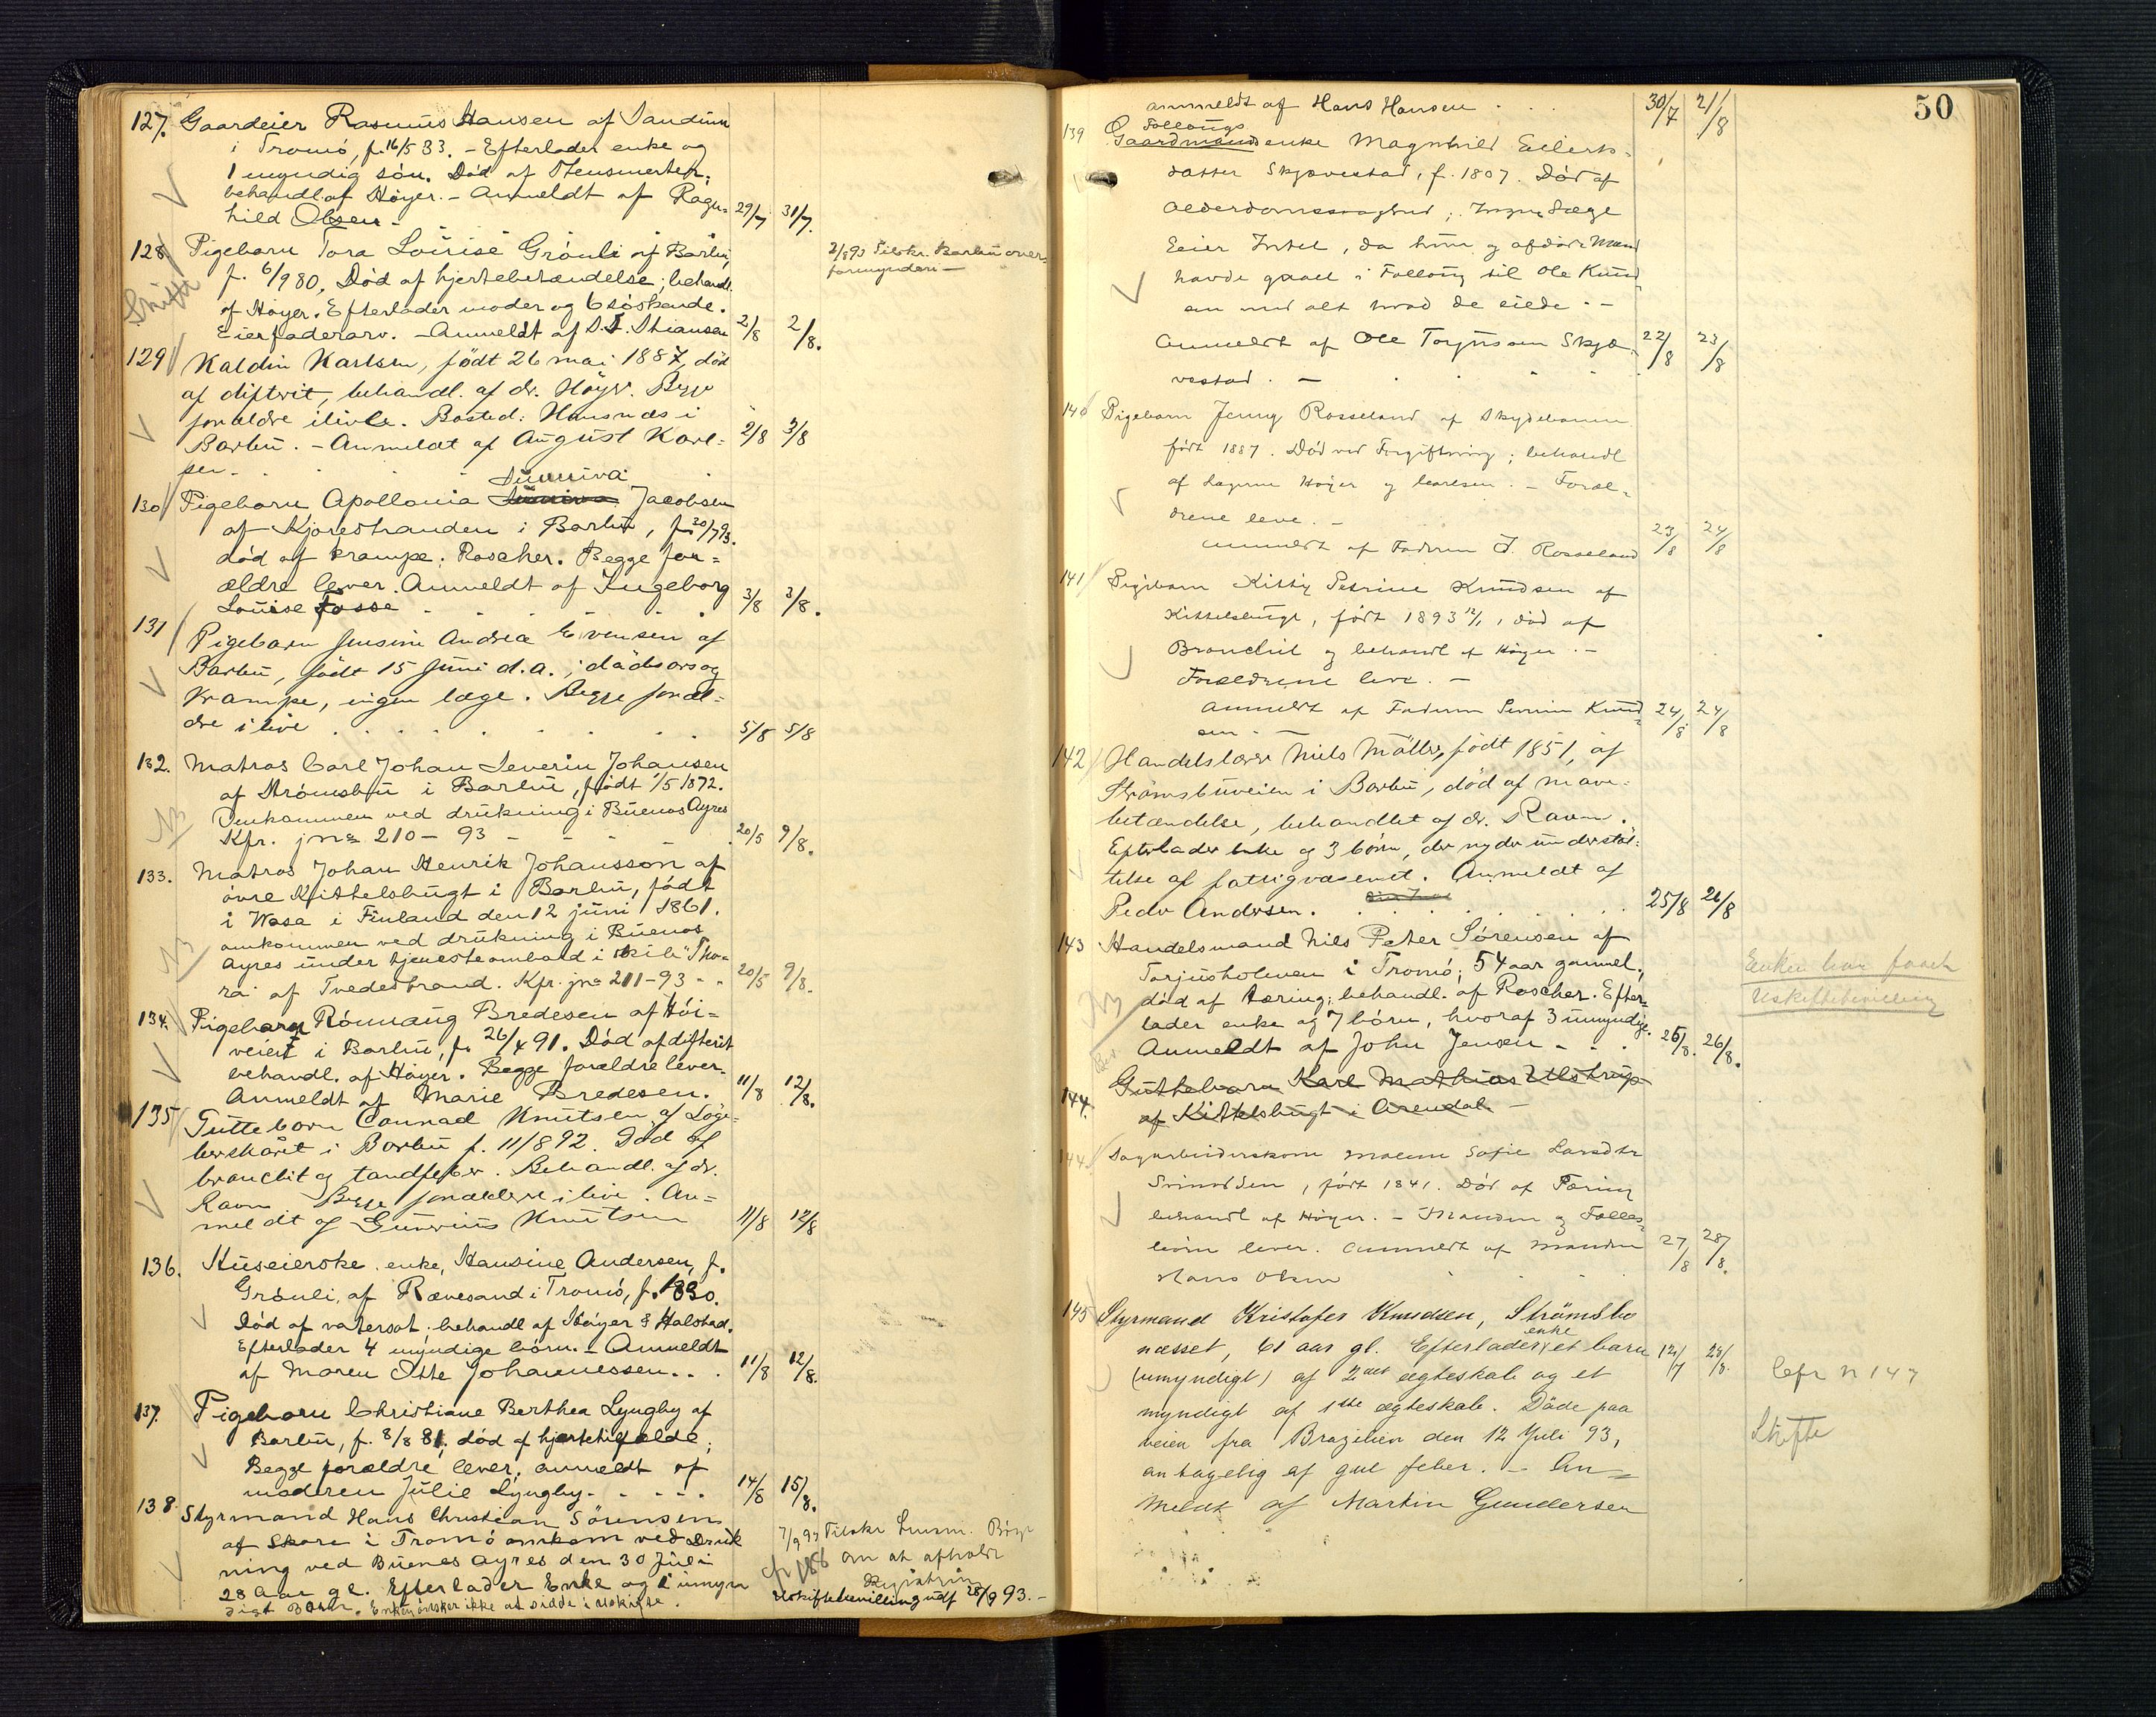 127. Gaardeier Rasmus Hansen af Sandum
i Tromö, f. 16/5 33. - Efterlader enke og
1 myndig sön. Död af
behandl. af Höyer. - Anmeldt af Ragn-
hild Olsen - 29/7 31/7.
128 Pigebarn Tora Louise Grönli af Barbu,
f. 6/9 80. Död af hjertebetændelse; behandl.
af Höyer. Efterlader moder og 6 söskende.
Eier faderarv. - Anmeldt af S. T. Stiansen 2/8 2/8.
Skifte
2/8 93 Tilskr. Barbu over-
formynderi -
129 Kaldin Karlsen, födt 26 mai 1887, död
af difterit, behandl. af dr. Höyer. Begge
forældre ilive. Bosted: Hansnæs i
Barbu. - Anmeldt af August Karl- 2/8 3/8
sen -
130 Pigebarn Apollonia Sunniva Jacobsen
af Kjörestranden i Barbu, f. 20/7 93.
död af krampe; Roscher. Begge for-
ældre lever. Anmeldt af Ingeborg
Louise Fosse 3/8 3/8.
131 Pigebarn Jensine Andrea Evensen af
Barbu, födt 15 Juni d.a.; dödsårsag
Krampe, ingen læge. Begge foræl-
dre i live 5/8 5/8
132. Matros Carl Johan Severin Johansen
af Strömsbu i Barbu, födt 1/5 1872.
Omkommen ved drukning i Buenos Ayres
Kfr. jno 210 - 93 - 20/5 9/8.
133. Matros Johan Henrik Johansson af
övre Kittelsbugt i Barbu, födt
i Wasa i Finland den 12 juni 1861.
omkommen ved drukning i Buenos
Ayres under tjeneste ombord i skib "Tho-
ra" af Tvedestrand. Kfr. jno 211-93 - 20/5 9/8.
134. Pigebarn Rönnaug Bredesen af Höi-
veiert i Barbu, f. 26/4 91. Död af difterit
behandl. af Höyer. Begge forældre lever.
Anmeldt af Marie Bredesen. 11/8 12/8.
135 Gutteborn Conrad Knutsen af Löge-
berskåret i Barbu f. 11/8 92. Död af
bronchit og tandfeber. Behandl. af dr.
Ravn Begge forældre i live. An-
meldt af Gunvius Knutsen 11/8 12/8
136. Huseierske, enke, Hansine Andersen, f.
Grönli, af Rævesand i Tromö, f. 1830.
Död af vatersot; behandl. af Höyer & Halstad.
Efterlader 4 myndige börn. - Anmeldt
af Maren Otte Johannessen. . . 11/8 12/8.
137. Pigebarn Christiane Berthea Lyngby af
Barbu, f. 8/8 81, död af hjertetilfælde;
Begge forældre lever; anmeldt af
moderen Julie Lyngby. - - - - 14/8 15/8.
138 Styrmand Hans Christian Sörensen
af Skare i Tromö omkom ved Druk
ning ved Buenos Ayres den 30 Juli
28 Aar gl. Efterlader Enke og 1 umyn
digt Barn. Enken önsker ikke at sidde i uskifte.
7/9 93 Tilskr Lensm. Böye
om at afholde
Registrering
cfr 188
Uskiftebevilling udf 28/9 93. -
50
anmeldt af Hans Hansen 30/7 21/8
139 Follougs
Gaardmandsenke Magnhild Eilerts-
datter Skjævestad, f. 1807. Död af
Alderdomssvaghed; Ingen Læge
Eier Intet, da hun og afdöde Mand
havde gaaet i Follaug til Ole Knud
sen med alt hvad de eiede. -
Anmeldt af Ole Torjussen Skjæ- 22/8 23/8
vestad. -
140 Pigebarn Jenny Rosseland af Skydebanen
födt 1887. Död ved Forgiftning; behandl
af Lægerne Höyer og Carlsen. - Foræl-
drene leve. -
anmeldt af Faderen J. Rosseland 23/8 24/8
141 Pigebarn Kitty Petrine Knudsen af
Kittelsbugt, födt 1893 12/1, död af
Bronchit og behandl af Höyer. -
Forældrene leve. -
Anmeldt af Faderen Knud 24/8 24/8
sen. -
142 Handelslærer Niels Möller, födt 1851, af
Strömsbuveien i Barbu, död af mave-
betændelse, behandlet af dr. Ravn.
Efterlader enke og 3 börn, der nyder understöt-
telse af fattigvæsenet. Anmeldt af
Peder Andersen. 25/8 26/8
143 Handelsmand Nils Peter Sörensen af
Torjusholmen i Tromö; 54 aar gammel,
död af tæring; behandl. af Roscher. Efter-
lader enke og 7 börn, hvoraf 3 umyndige.
Anmeldt af John Jensen - - . 26/8. 26/8.
Enken har faaet
Uskiftebevilling
144. Guttebarn Karl Mathias Ulstrup
af Kittelsbugt i Arendal. -
144. Dagarbeiderskone Maren Sofie Larsdtr
Svindsen, födt 1841. Död af Tæring
behandl af Höyer. - Manden og Fælles-
börn lever. Anmeldt af Manden 27/8 28/8.
Hans Olsen
145 Styrmand Kristofer Knudsen, Strömsbo
næsset, 61 aar gl. Efterlader enke et barn 12/7 28/8.
(umyndigt) af 2det ægteskab og et
myndigt af 1ste ægteskab. Döde paa
veien fra Brazilien den 12 Juli 93,
antagelig af gul feber. - An-
meldt af Martin Gundersen
Cfr n 147
Skifte